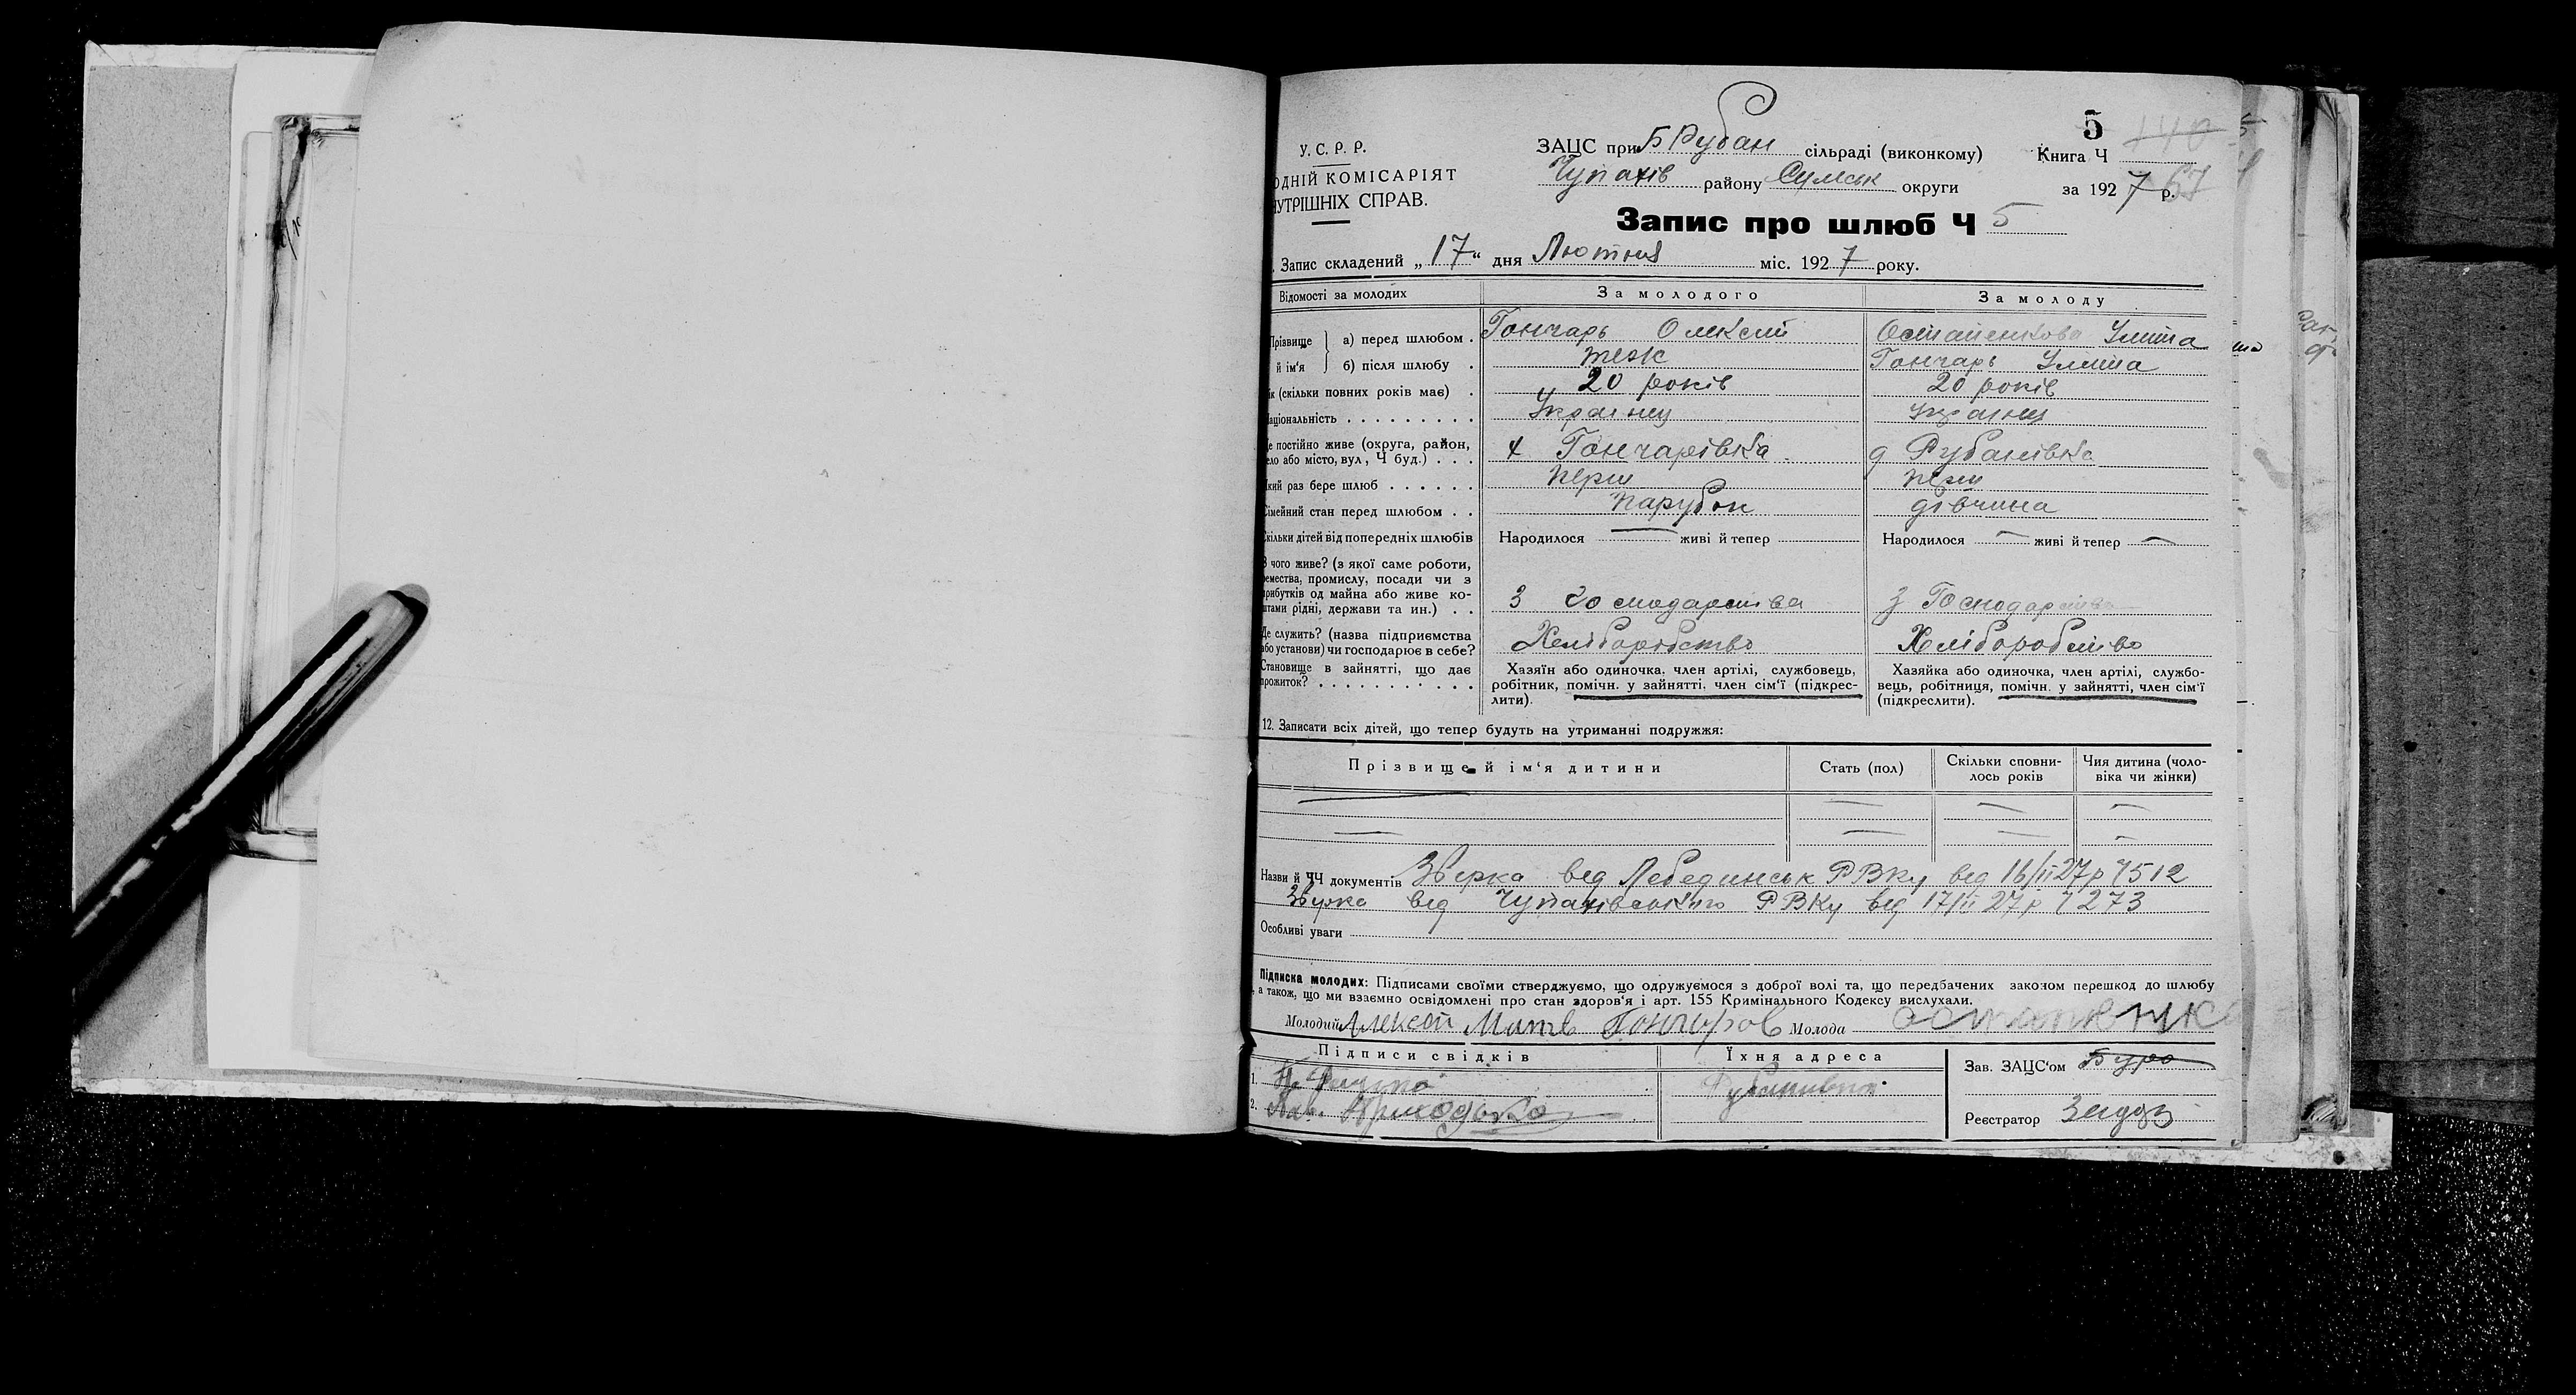 5
У. С. Р. Р.
ОДНІЙ КОМІСАРІЯТ
НУТРІШНІХ СПРАВ.
ЗАЦС при Б Рубан сільраді (виконкому) Книга Ч
Чупахів району Сумськ округи за 1927 р. 67
Запис про шлюб Ч 5
Запис складений „17“ дня Лютня міс. 1927 року.
Відомості за молодих За молодого За молоду
Прізвище й ім'я а) перед шлюбом . Гончарь Олексій Остапенкова Улита
б) після шлюбу . теж Гончарь Улита
ік (скільки повних років має) . 20 років 20 років
аціональність . . . . . . . . . Українец Українец
е постійно живе (округа, район, ело або місто, вул, Ч буд.) . . . х Гончарівка д Рубанівка
кий раз бере шлюб . . . . . . перш перш
Сімейний стан перед шлюбом . . парубок дівчина
кільки дітей від попередніх шлюбів Народилося — живі й тепер Народилося — живі й тепер —
З чого живе? (з якої саме роботи,
емества, промислу, посади чи з
рибутків од майна або живе ко-
штами рідні, держави та ин.) . . З господарства З Господарства
Де служить? (назва підприємства
або установи) чи господарює в себе? Хеліборобство Хліборобство
Становище в зайнятті, що дає
прожиток? . . . . . . . . . . .
Хазяїн або одиночка, член артілі, службовець,
робітник, помічн. у зайнятті, член сім'ї (підкрес-
лити).
Хазяйка або одиночка, член артілі, службо-
вець, робітниця, помічн. у зайнятті, член сім'ї
(підкреслити).
12. Записати всіх дітей, що тепер будуть на утриманні подружжя:
Прізвище й ім'я дитини Стать (пол) Скільки сповни-лось років Чия дитина (чоло-віка чи жінки)
Назви й ЧЧ документів Звірка від Лебединськ РВКу від 16/II 27р Ч512
Звірка від Чупахівського РВКу від 17/II 27р Ч 273
Особливі уваги
Підписка молодих: Підписами своїми стверджуємо, що одружуємося з доброї волі та, що передбачених законом перешкод до шлюбу
, а також, що ми взаємно освідомлені про стан здоров'я і арт. 155 Кримінального Кодексу вислухали.
Молодий Алексей Матв Гончаров Молода
Підписи свідків Їхня адреса
1. Рубанивка
2. Приходько
Зав. ЗАЦС'ом
Реєстратор